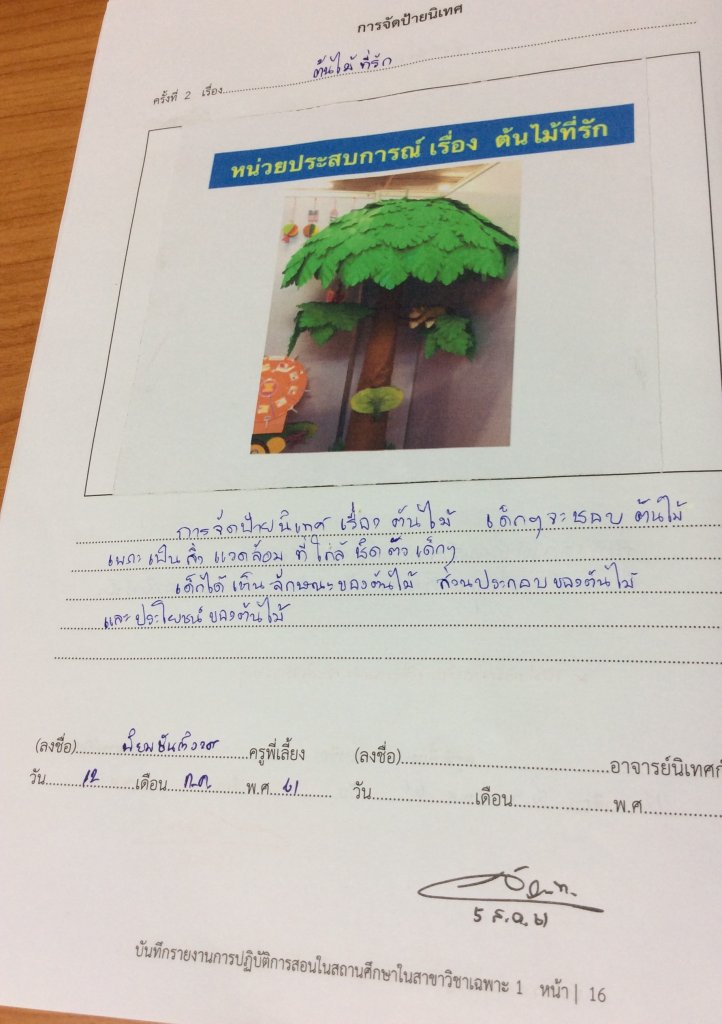 การจัดป้ายนิเทศ
ครั้งที่ 2 เรื่อง ต้นไม้ที่รัก
หน่วยประสบการณ์ เรื่อง ต้นไม้ที่รัก
การจัดป้ายนิเทศ เรื่อง ต้นไม้ เด็กๆจะชอบ ต้นไม้
เพราะเป็นสิ่งแวดล้อม ที่ใกล้ชิดตัวเด็กๆ
เด็กได้เห็นลักษณะของต้นไม้ ส่วนประกอบของต้นไม้
และประโยชน์ของต้นไม้
(ลงชื่อ) ครูพี่เลี้ยง (ลงชื่อ) อาจารย์นิเทศก์
วัน 12 เดือน ก.ค. พ.ศ. 61 วัน เดือน พ.ศ.
5 ส.ค. 61
บันทึกรายงานการปฏิบัติการสอนในสถานศึกษาในสาขาวิชาเฉพาะ 1 หน้า | 16